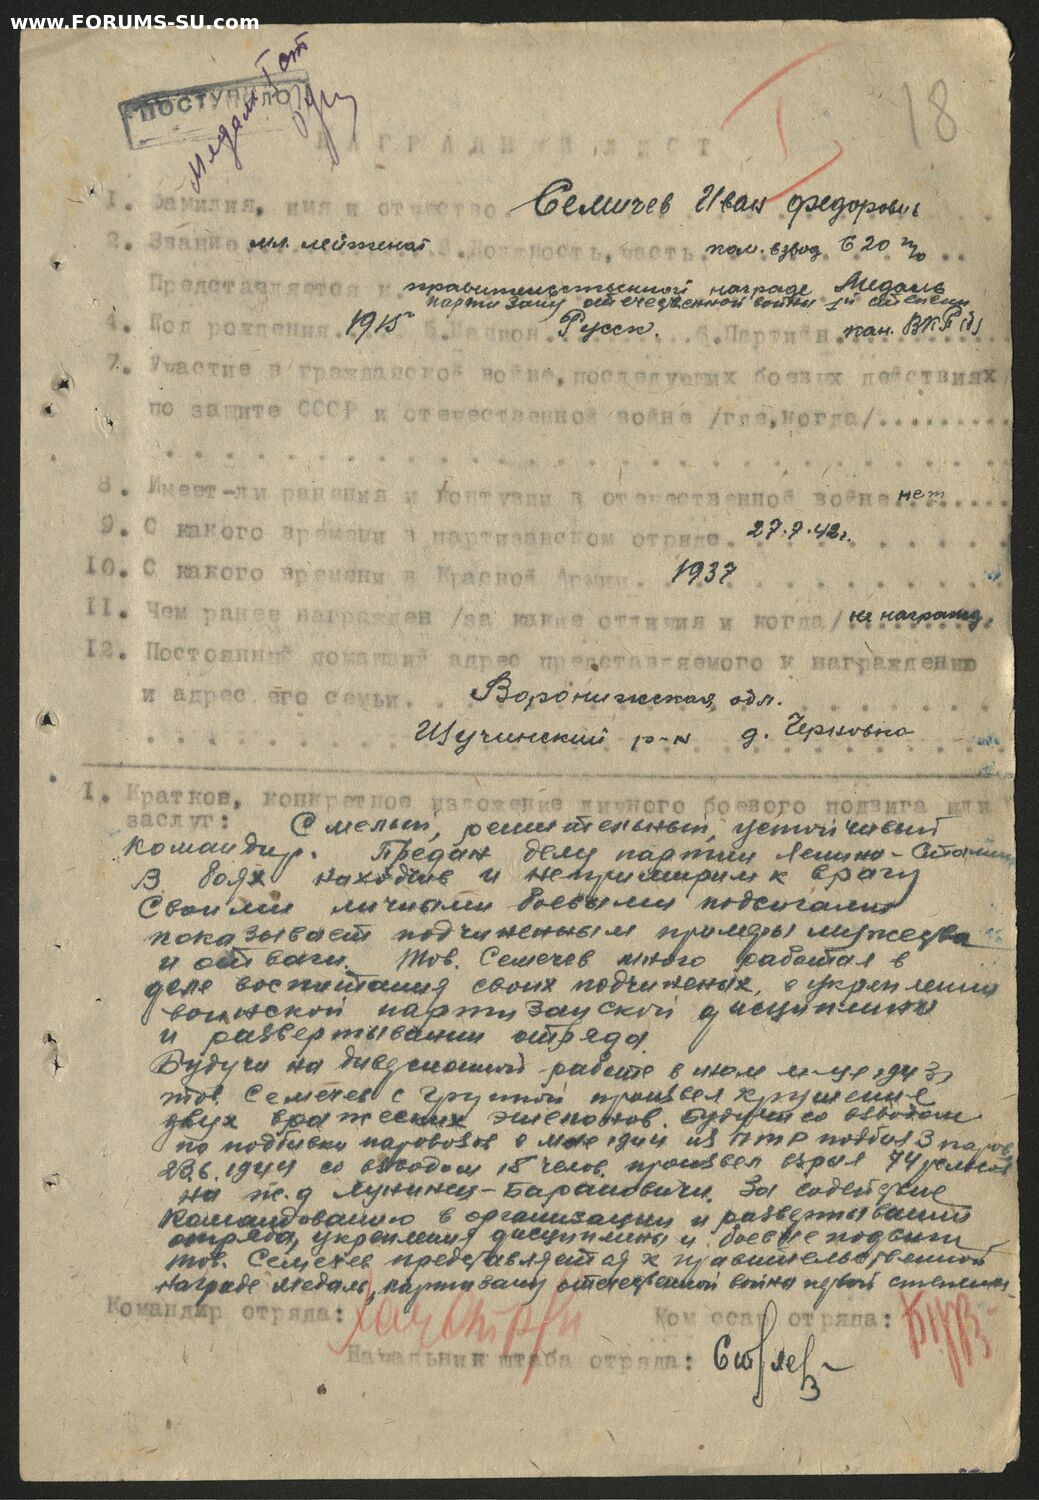 www.FORUMS-SU.com
ПОСТУПИЛО
18
I
НАГРАДНОЙ ЛИСТ
1. Фамилия, имя и отчество Семичев Иван Федорович
2. Звание мл. лейтенат 3. Должность, часть пом. взвод
Представляется к правительственной награде Медаль
партизану отечественной войны 1й степени
4. Год рождения 1915 5. Национ. Русск. 6. Партийн. кан. ВКП(б)
7. Участие в гражданской войне, последующих боевых действиях
по защите СССР и отечественной войне /где, когда/
8. Имеет-ли ранения и контузии в отечественной войне нет
9. С какого времени в партизанском отряде 27.7.42г.
10. С какого времени в Красной Армии 1937
11. Чем ранее награжден /за какие отличия и когда/ не награжд.
12. Постоянный домашний адрес представляемого к награждению
и адрес его семьи. Воронижская обл.
Щучинский р-н д.
1. Краткое, конкретное изложение личного боевого подвига или
заслуг: Смелый, решительный, устойчивый
командир. Предан делу партии Ленина-Сталина
В боях находчив и непримирим к врагу
Своими личными боевыми подвигами
показывает подчиненным примеры мужества
и отваги. Тов. Семечев много работал в
деле воспитания своих подчиненых, в укреплении
воинской партизанской дисциплины
и развертывании отряда.
Будучи на диверсионной работе в м-це 1943
тов. Семечев с группой произвел крушение
двух вражеских эшелонов. Будучи со взводом
по подбивки паровозов в 1944 из ПТР подбил 3 паров.
23.6.1944 со взводом 15 челов. произвел взрыв 74 рельсов
на ж.д Лунинец-Барановичи. За содействие
командованию в организации и развертывании
отряда, укрепления дисциплины и боевые подвиги
тов. Семечев представляется к правительственной
награде медаль, партизану отечественной война первой степени.
Командир отряда:
Комиссар отряда:
Начальник штаба отряда: